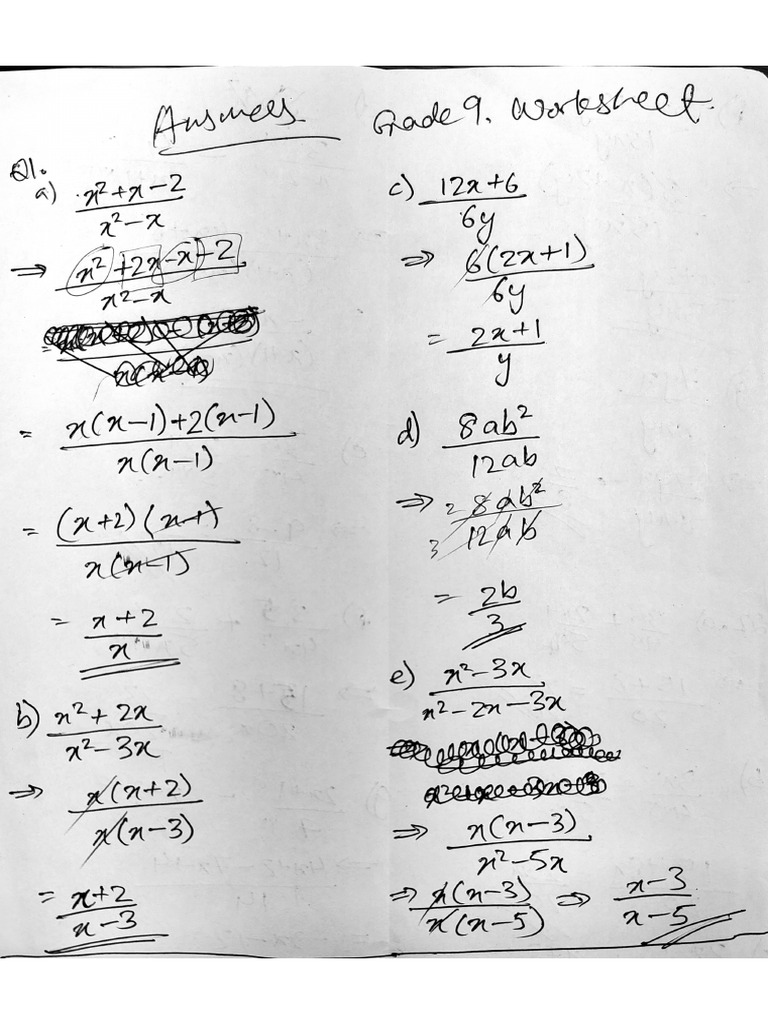 Answers Grade 9. Worksheet.
Q1.
a) x²+x-2 / x²-x
⇒ x²+2x-x-2 / x²-x
= x(x-1)+2(x-1) / x(x-1)
= (x+2)(x-1) / x(x-1)
= x+2 / x
b) x²+2x / x²-3x
⇒ x(x+2) / x(x-3)
= x+2 / x-3
c) 12x+6 / 6y
⇒ 6(2x+1) / 6y
= 2x+1 / y
d) 8ab² / 12ab
⇒ 2 8ab² / 3 12ab
= 2b / 3
e) x²-3x / x²-2x-3x
⇒ x(x-3) / x²-5x
⇒ x(x-3) / x(x-5) ⇒ x-3 / x-5